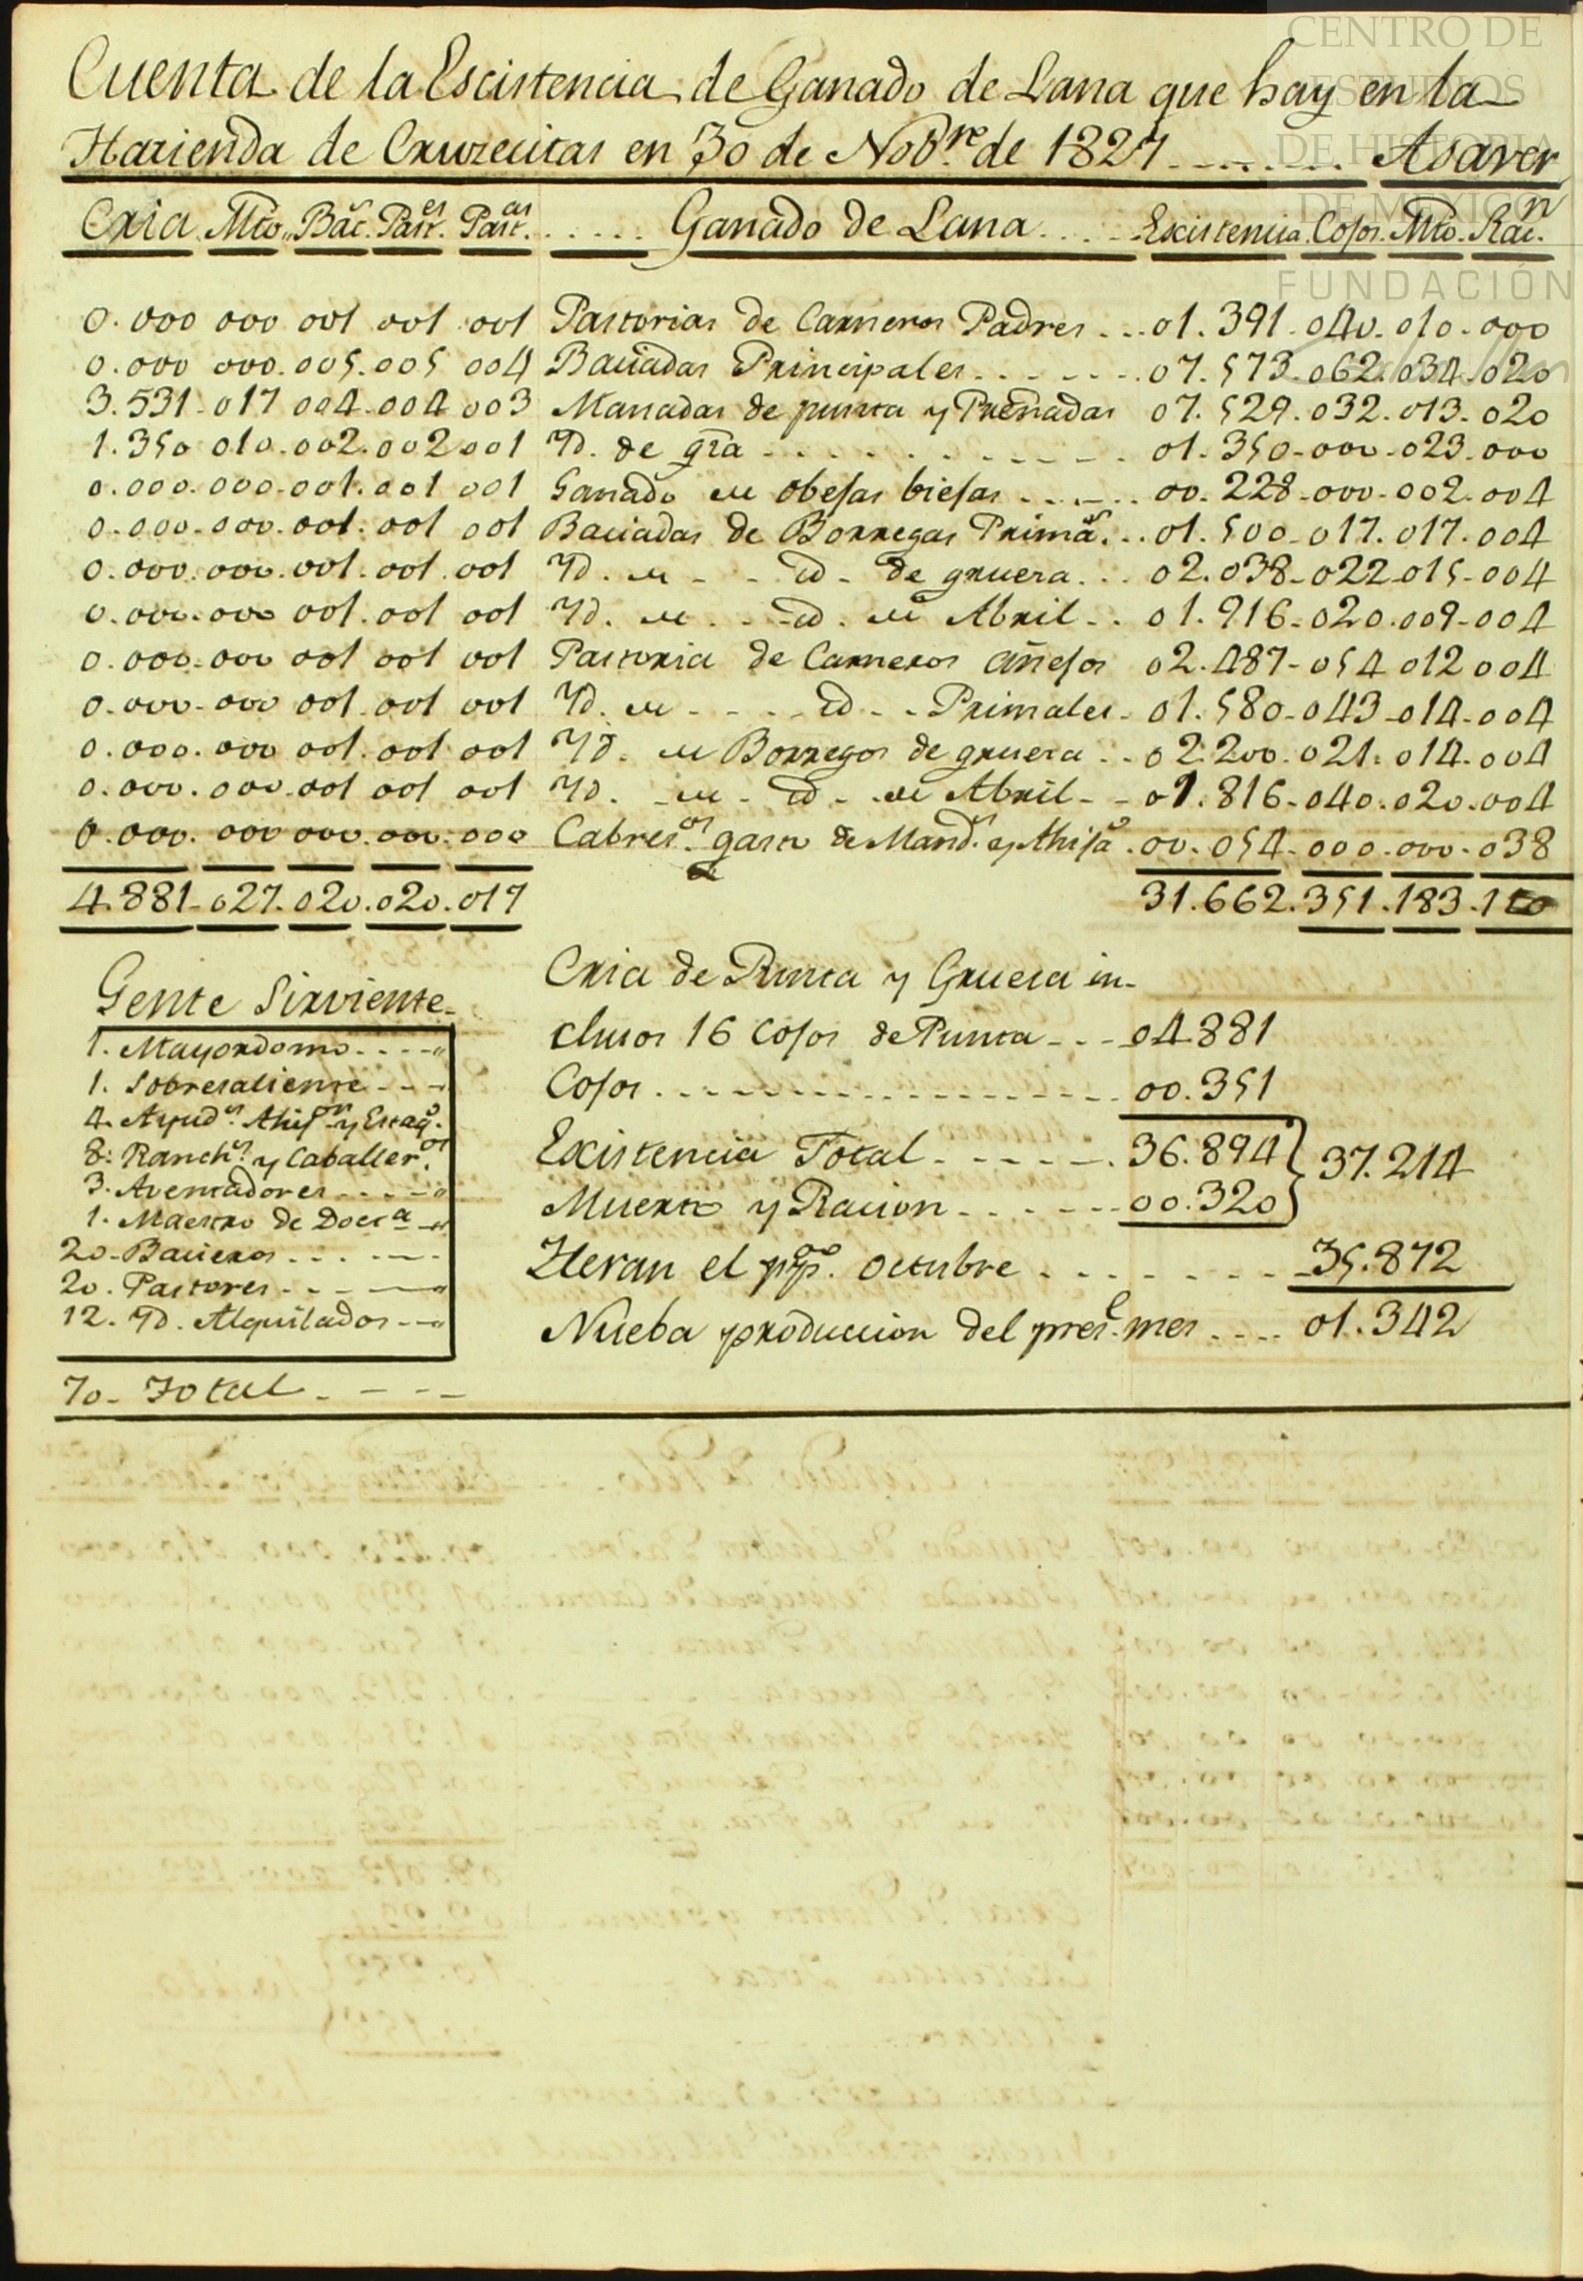 CENTRO DE
ESTUDIOS
DE HISTORIA
DE MÉXICO
FUNDACIÓN
Cuenta de la Escistencia de Ganado de Lana que hay en la
Hazienda de Cruzecitas en 30 de Nob.re de 1827 . . . . . . Asaver
Cria. Mto. Bac.s Past.es Past.as . . . . . Ganado de Lana . . . . Escistencia. Cojos. Mto. Rac.n
0.000 000 001 001 001 Pastorias de Carneros Padres . . . 01.391-040-010-000
0.000 000.005.005 004 Baciadas Principales . . . . . . 07.573.062.034-020
3.531-017 004-004 003 Manadas de punta y Preñadas 07.529.032.013-020
1.350 010.002.002 001 Yd. de gra . . . . . . . . . . . 01.350-000-023-000
0.000.000-001.001 001 Ganado de obejas biejas . . . . . 00.228-000-002.004
0.000.000.001.001 001 Baciadas de Borregas Prima.s . . 01.500-017.017.004
0.000.000.001.001.001 Yd. de - - id - de gruesa . . . 02.038-022-015-004
0.000.000 001.001 001 Yd. de . . . id . de Abril . . 01.916-020.009-004
0.000.000 001 001 001 Pastoria de Carneros añejos 02.487-054 012 004
0.000.000 001.001 001 Yd. de - - - - id - - Primales - 01.580-043-014-004
0.000.000 001.001 001 Yd. de Borregos de gruesa . . 02.200.021.014.004
0.000.000.001 001 001 Yd. - de - id - de Abril - - 01.816-040.020.004
0.000.000 000.000.000 Cabres.os gasto de Mand.s y Ahija.o . 00.054-000-000-038
4.881-027.020.020.017 31.662.351.183.1
Gente Sirviente
1. Mayordomo . . . .
1. Sobresaliente . . .
4. Ayud.s Ahij.on y Estaq.o
8. Ranch.s y Caballer.os
3. Aventadores . . . .
1. Maestro de Doct.a
20. Bacieros . . . . .
20. Pastores . . . .
12. Yd. Alquilados . . .
70. Total . . . .
Cria de Punta y Gruesa in-
clusos 16 Cojos de Punta . . . 04.881
Cojos . . . . . . . . . . . . . 00.351
Escistencia Total . . . . . . 36.894 } 37.214
Muerto y Racion . . . . . . 00.320
Heran el pp.do octubre . . . . . . . 35.872
Nueba produccion del pres.e mes . . . . 01.342